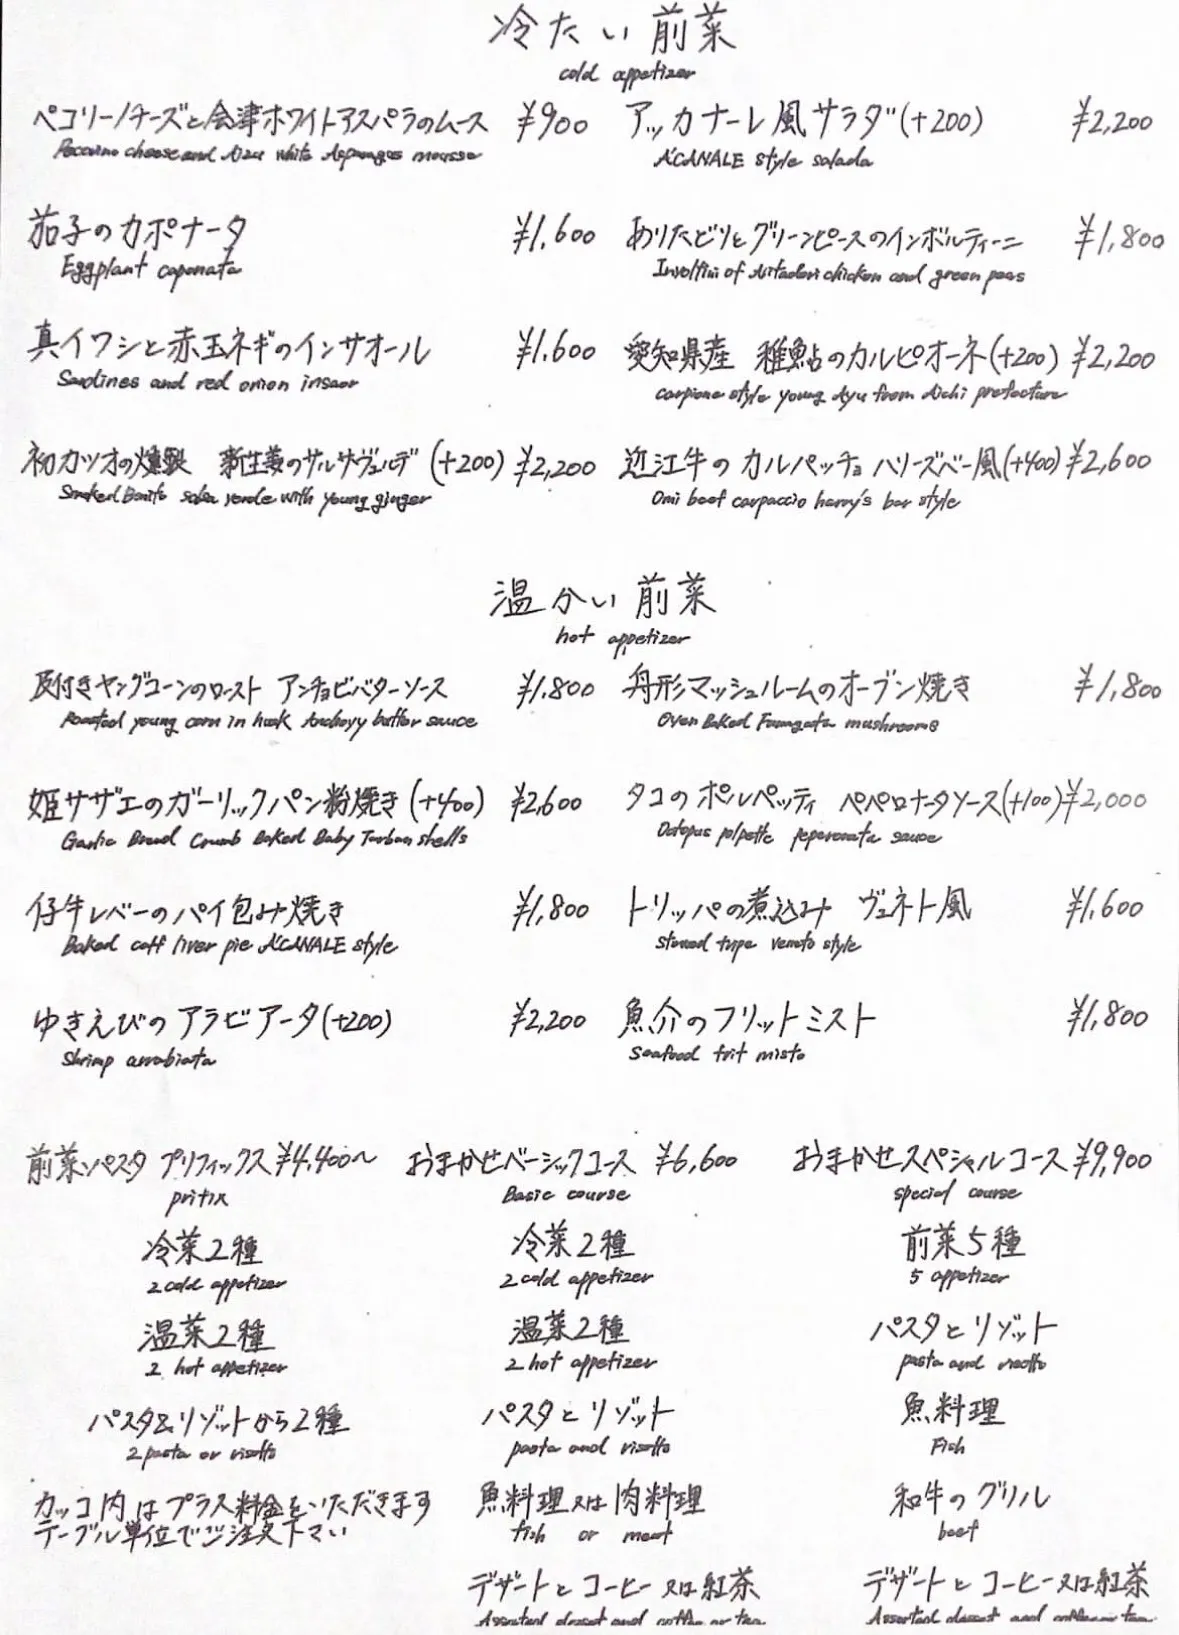 冷たい前菜
cold appetizer
ペコリーノチーズと会津ホワイトアスパラのムース ¥900
Pecorino cheese and Aizu white Asparagus mousse
アッカナーレ風サラダ(+200) ¥2,200
A'CANALE style salada
茄子のカポナータ ¥1,600
Eggplant caponata
ありたどりとグリーンピースのインボルティーニ ¥1,800
Involtini of Aritadori chicken and green peas
真イワシと赤玉ネギのインサオール ¥1,600
Sardines and red onion insaor
愛知県産 稚鮎のカルピオーネ(+200) ¥2,200
carpione style young Ayu from Aichi prefecture
初カツオの燻製 新生姜のサルサヴェルデ (+200) ¥2,200
Smoked Bonito salsa verde with young ginger
近江牛のカルパッチョ ハリーズバー風(+400) ¥2,600
Omi beef carpaccio harry's bar style
温かい前菜
hot appetizer
皮付きヤングコーンのロースト アンチョビバターソース ¥1,800
Roasted young corn in husk Anchovy butter sauce
舟形マッシュルームのオーブン焼き ¥1,800
Oven Baked Funagata mushrooms
姫サザエのガーリックパン粉焼き(+400) ¥2,600
Garlic Bread Crumb Baked Baby Turban shells
タコのポルペッティ ペペロナータソース(+100) ¥2,000
Octopus polpette peperonata sauce
仔牛レバーのパイ包み焼き ¥1,800
Baked calf liver pie A'CANALE style
トリッパの煮込み ヴェネト風 ¥1,600
stewed tripe veneto style
ゆきえびのアラビアータ(+200) ¥2,200
Shrimp arrabiata
魚介のフリットミスト ¥1,800
Seafood frit misto
前菜・パスタ プリフィックス¥4,400〜
prifix
冷菜2種
2 cold appetizer
温菜2種
2 hot appetizer
パスタ&リゾットから2種
2 pasta or risotto
カッコ内はプラス料金をいただきます
テーブル単位でご注文下さい
おまかせベーシックコース ¥6,600
Basic course
冷菜2種
2 cold appetizer
温菜2種
2 hot appetizer
パスタとリゾット
pasta and risotto
魚料理又は肉料理
fish or meat
デザートとコーヒー又は紅茶
Assorted dessert and coffee or tea
おまかせスペシャルコース ¥9,900
special course
前菜5種
5 appetizer
パスタとリゾット
pasta and risotto
魚料理
Fish
和牛のグリル
beef
デザートとコーヒー又は紅茶
Assorted dessert and coffee or tea